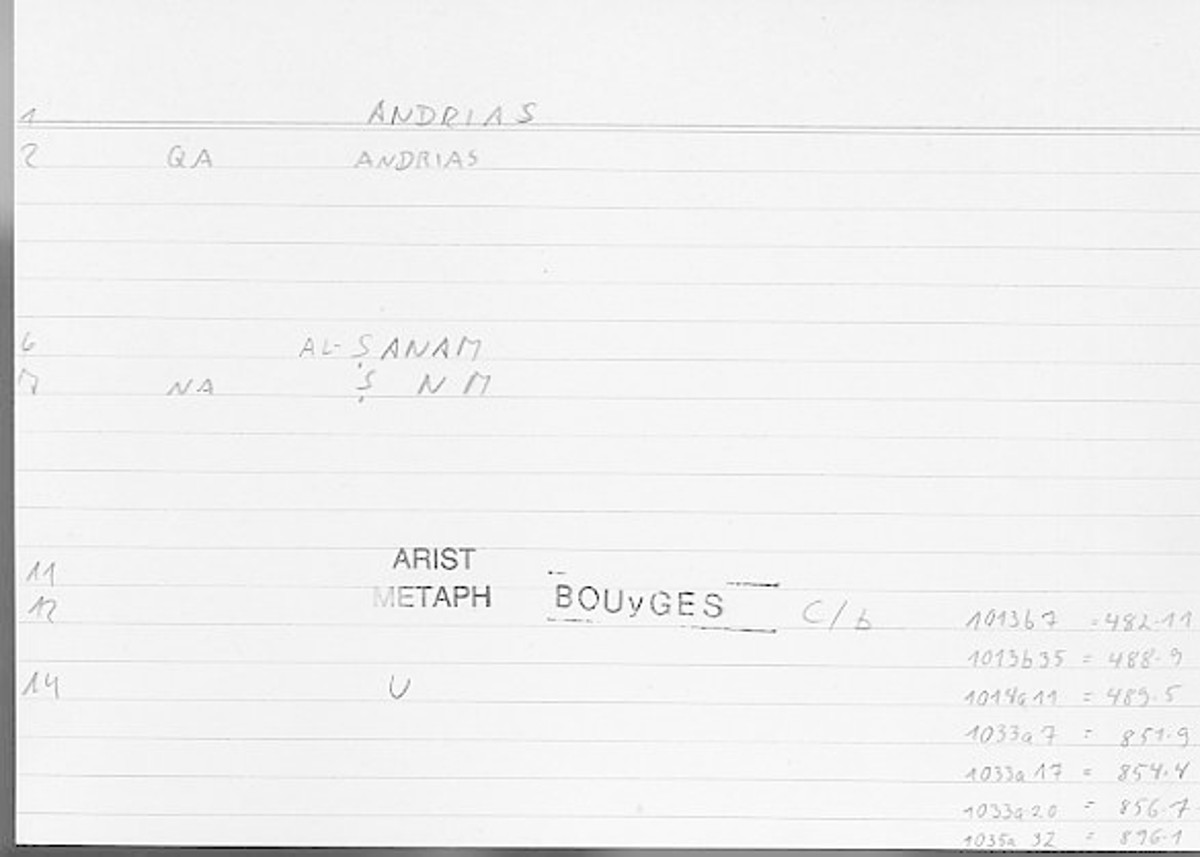 1 ANDRIAS
2 QA ANDRIAS
6 AL-ṢANAM
7 NA Ṣ N M
11 ARIST
12 METAPH BOUyGES C/b 1013b7 = 482.11
1013b35 = 488.9
14 U 1014a11 = 489.5
1033a7 = 851.9
1033a17 = 854.4
1033a20 = 856.7
1035a 32 = 896.1